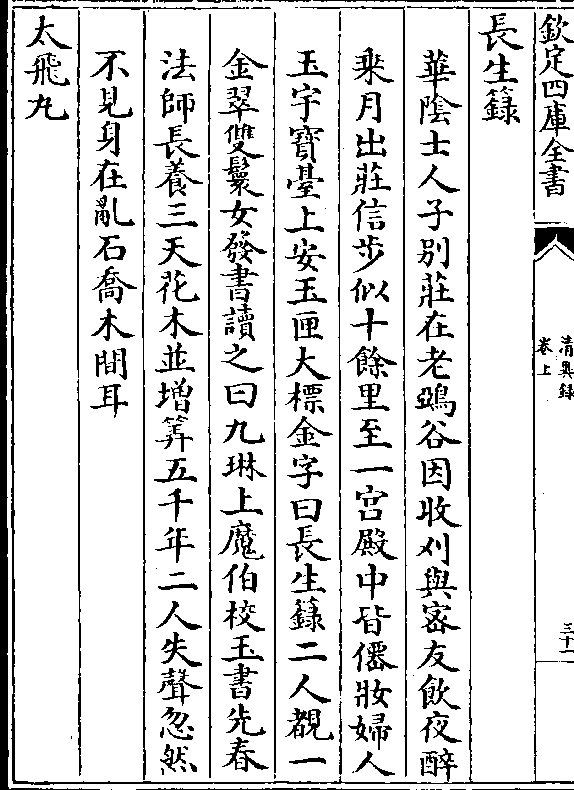 欽定四庫全書
清異録
卷上
三十一
長生籙
華陰士人子別莊在老鴉谷因收刈與密友飲夜醉
乗月出莊信步似十餘里至一宫殿中皆僊妝婦人
玉宇寳臺上安玉匣大標金字曰長生籙二人覩一
金翠雙鬟女發書讀之曰九琳上魔伯校玉書先春
法師長養三天花木並增筭五千年二人失聲忽然
不見身在亂石喬木間耳
太飛丸